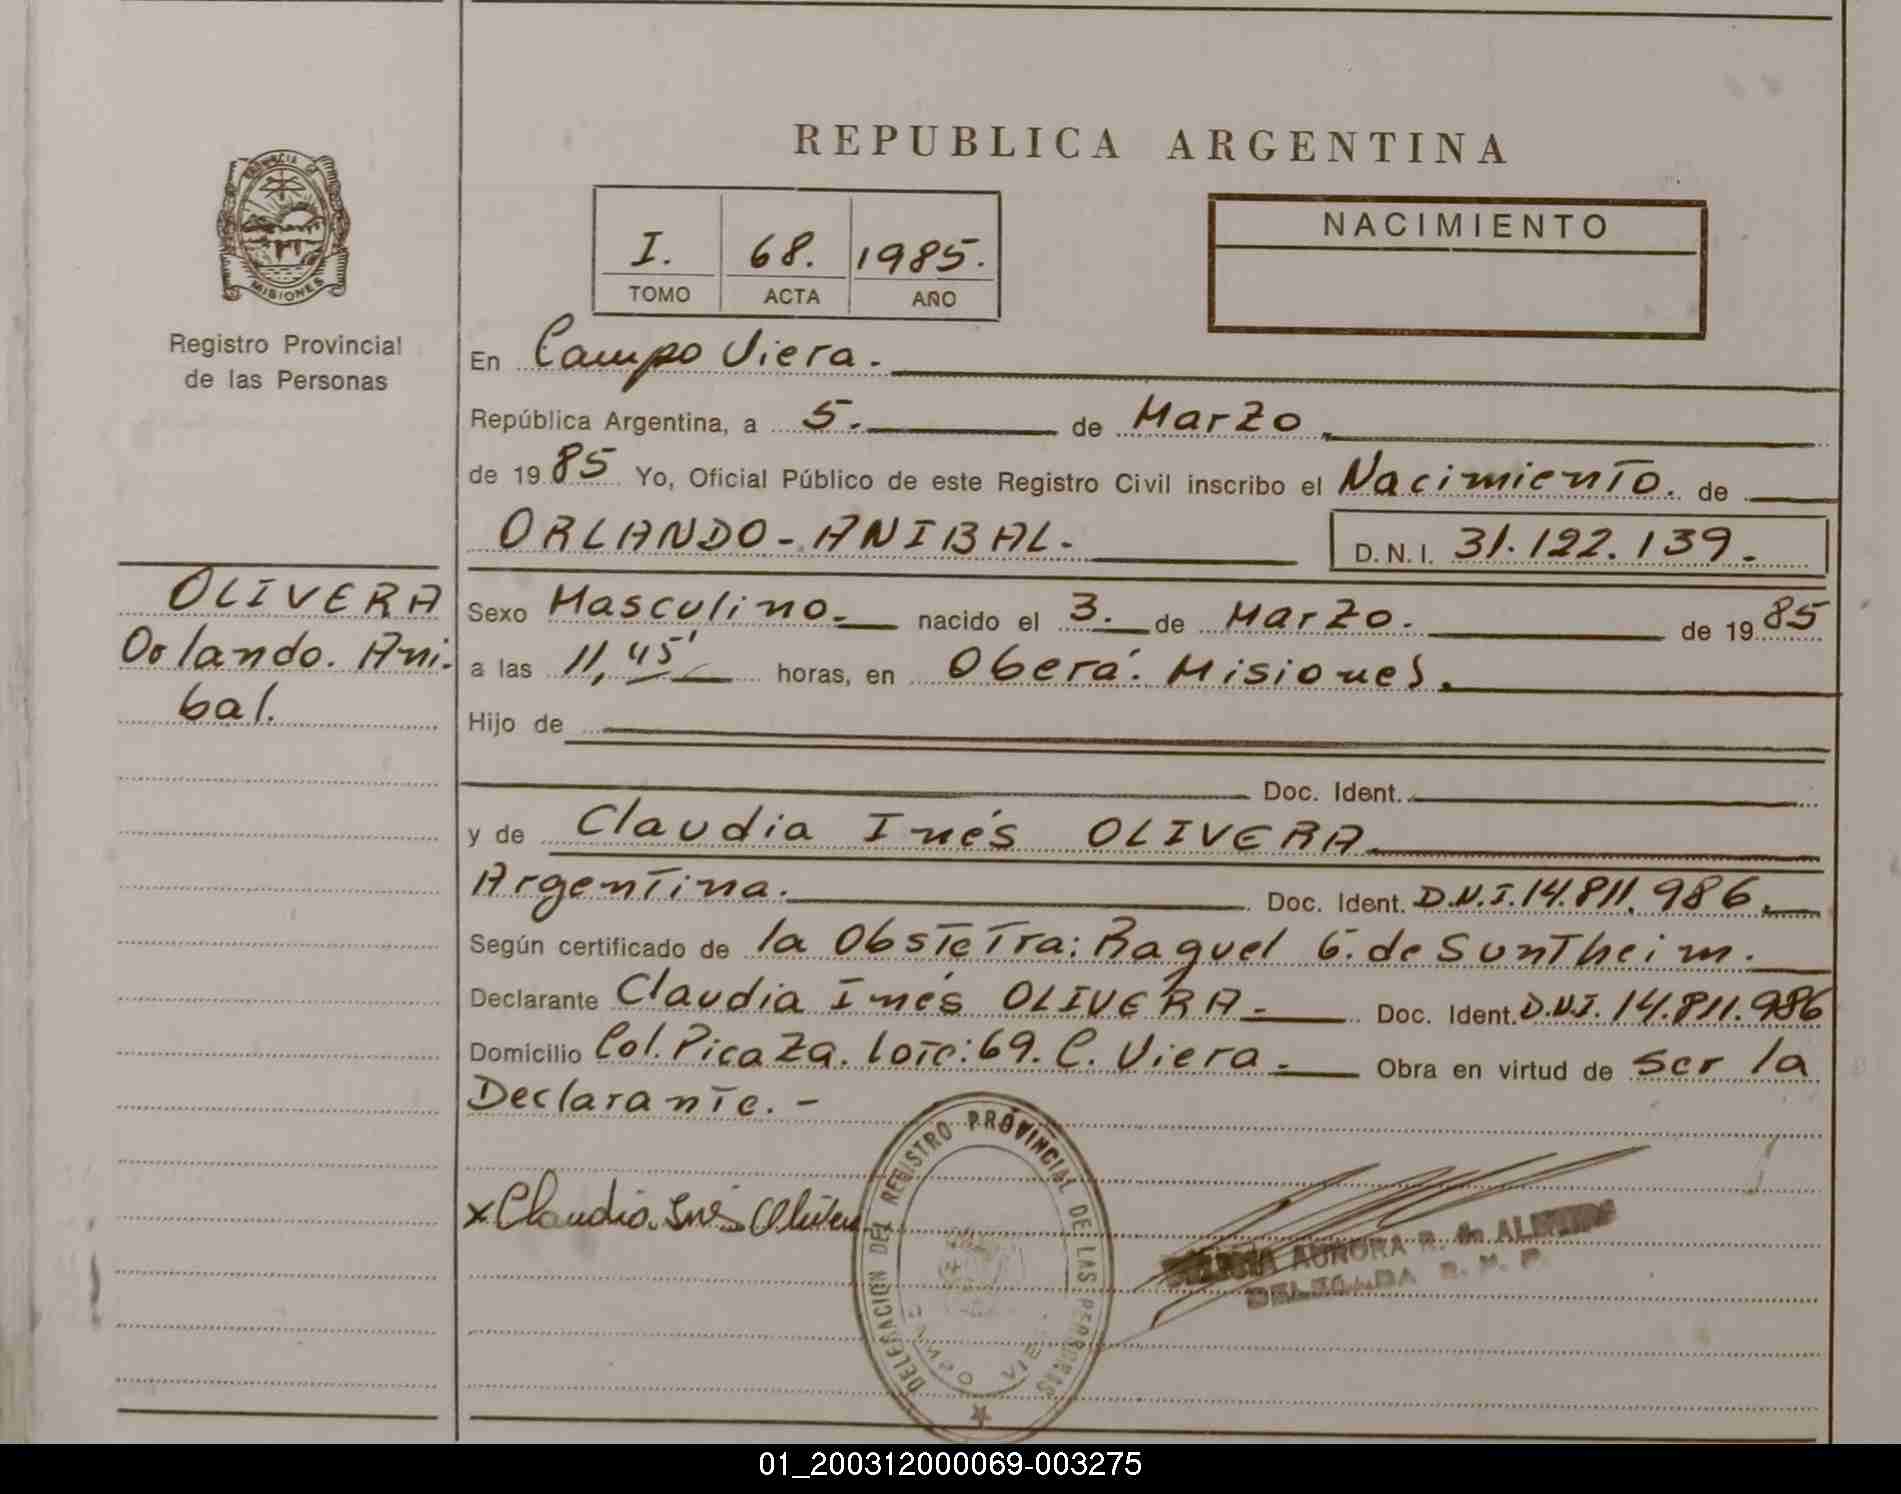 REPUBLICA ARGENTINA
PROVINCIA DE
MISIONES
Registro Provincial
de las Personas
I. 68. 1985.
TOMO ACTA AÑO
NACIMIENTO
En Campo Viera.
República Argentina, a 5. de Marzo
de 1985 Yo, Oficial Público de este Registro Civil inscribo el Nacimiento. de
ORLANDO - ANIBAL.- D.N.I. 31.122.139.
OLIVERA
Orlando. Ani-
bal.
Sexo Masculino. nacido el 3. de Marzo. de 1985
a las 11,45' horas, en Oberá. Misiones.
Hijo de
Doc. Ident.
y de Claudia Inés OLIVERA
Argentina. Doc. Ident. D.N.I.14.811.986.
Según certificado de la Obstetra: Raquel G. de Suntheim.
Declarante Claudia Inés OLIVERA.- Doc. Ident. D.N.I. 14.811.986
Domicilio Col. Picaza. lote:69. C. Viera. Obra en virtud de ser la
Declarante.-
x Claudia Inés Olivera
DELEGACION DEL REGISTRO PROVINCIAL DE LAS PERSONAS
CAMPO VIERA
AURORA R. de ALMEIDA
DELEGADA R. P.
01_200312000069-003275